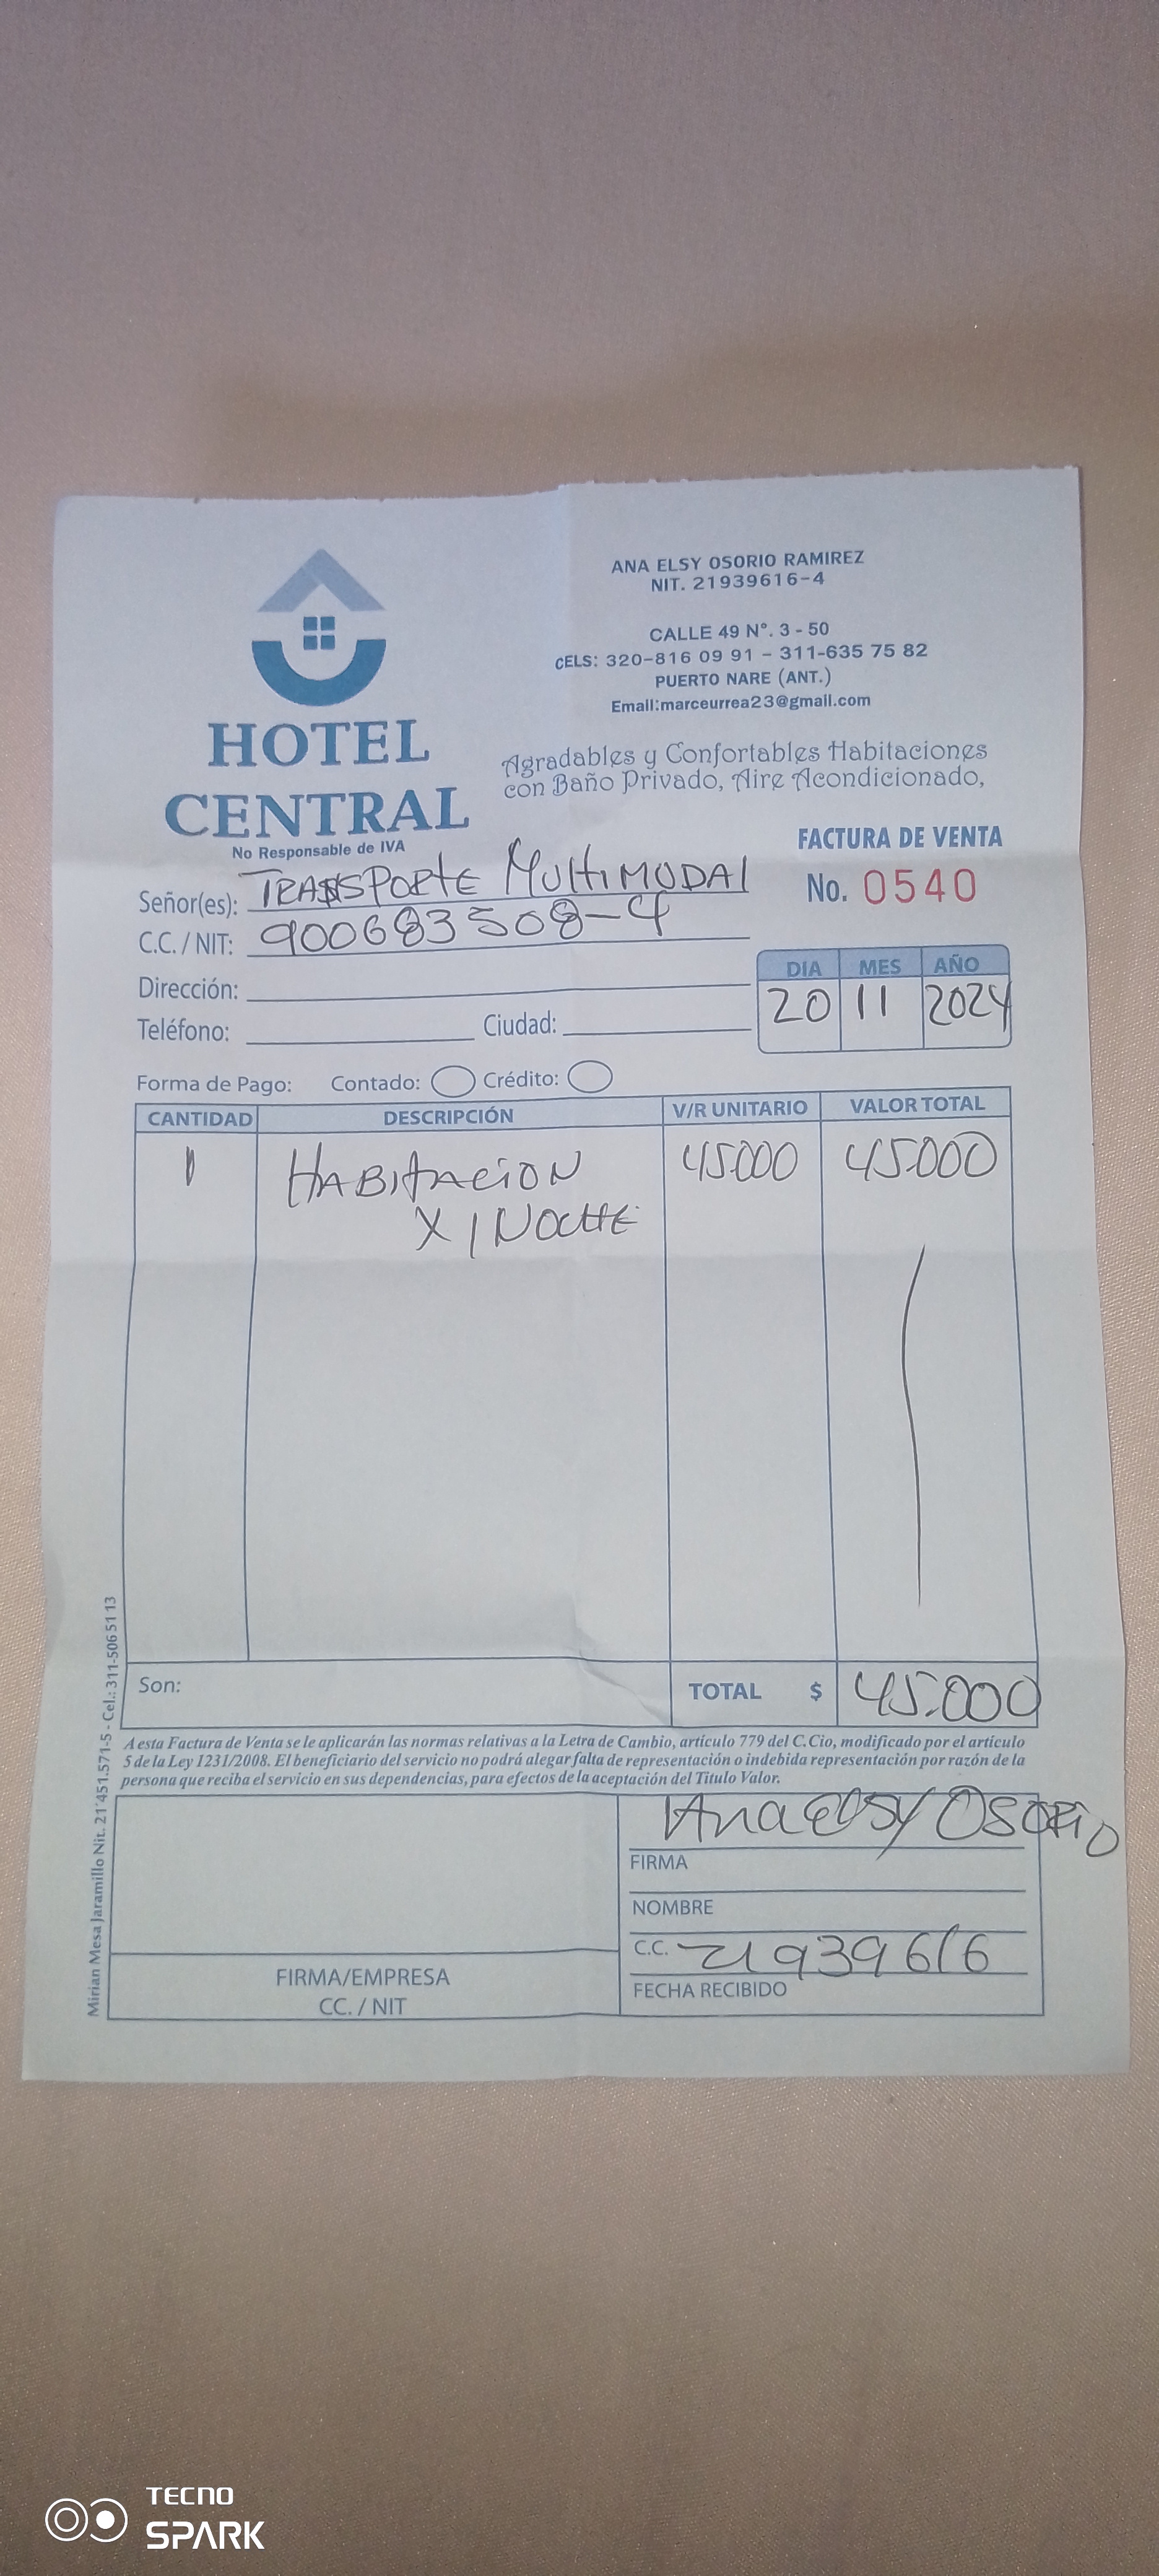 ANA ELSY OSORIO RAMIREZ
NIT. 21939616-4
CALLE 49 N°. 3 - 50
CELS: 320-816 09 91 - 311-635 75 82
PUERTO NARE (ANT.)
Email:marceurrea23@gmail.com
HOTEL
CENTRAL
No Responsable de IVA
Agradables y Confortables Habitaciones
con Baño Privado, Aire Acondicionado,
FACTURA DE VENTA
No. 0540
Señor(es): TRANSPORTE MULTIMODAL
C.C. / NIT: 900683508-4
Dirección:
Teléfono: Ciudad:
DIA MES AÑO
20 11 2024
Forma de Pago: Contado: Crédito:
CANTIDAD DESCRIPCIÓN V/R UNITARIO VALOR TOTAL
1 HABITACION 45000 45.000
X 1 NOCHE
Son: TOTAL $ 45.000
A esta Factura de Venta se le aplicarán las normas relativas a la Letra de Cambio, artículo 779 del C.Cio, modificado por el artículo
5 de la Ley 1231/2008. El beneficiario del servicio no podrá alegar falta de representación o indebida representación por razón de la
persona que reciba el servicio en sus dependencias, para efectos de la aceptación del Titulo Valor.
Ana Elsy Osorio
FIRMA
NOMBRE
C.C. 21939616
FECHA RECIBIDO
FIRMA/EMPRESA
CC. / NIT
Mirian Mesa Jaramillo Nit. 21'451.571-5 - Cel.: 311-506 51 13
TECNO
SPARK